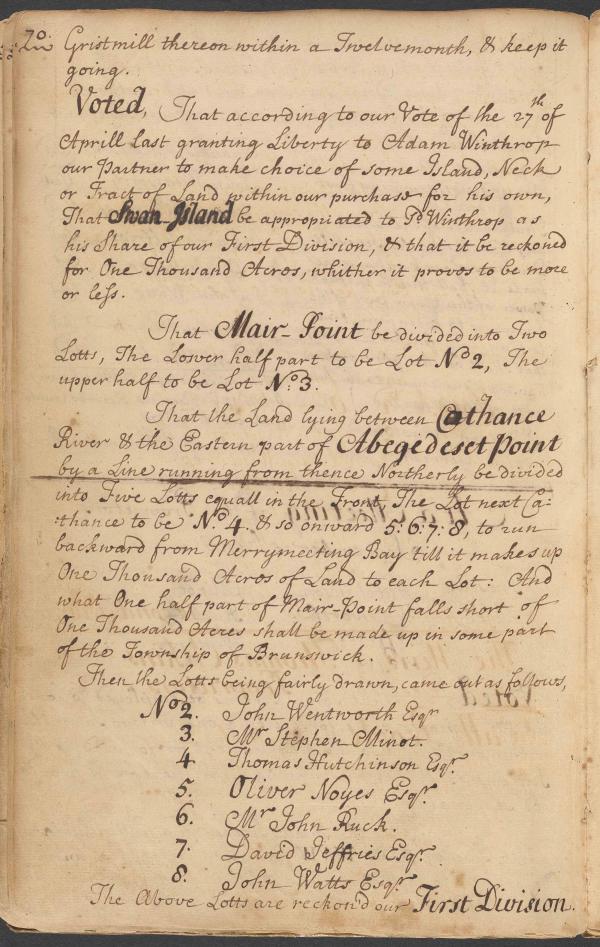 70. Gristmill thereon within a Twelvemonth, & keep it
going.
Voted, That according to our Vote of the 27th of
Aprill last granting Liberty to Adam Winthrop
our Partner to make choice of some Island, Neck
or Tract of Land within our purchase for his own,
That Swan-Island be appropriated to sd Winthrop as
his Share of our First Division, & that it be reckoned
for One Thousand Acres, whither it proves to be more
or less.
That Mair-Point be divided into Two
Lotts, The Lower half part to be Lot No 2, The
upper half to be Lot No. 3.
That the Land lying between Cathance
River & the Eastern part of Abegedeset Point
by a Line running from thence Northerly be divided
into Five Lotts equall in the Front, The Lot next Ca:
:thance to be No. 4. & so onward 5: 6: 7: 8, to run
backward from Merrymeeting Bay till it makes up
One Thousand Acres of Land to each Lot: And
what One half part of Mair-Point falls short of
One Thousand Acres shall be made up in some part
of the Township of Brunswick.
Then the Lotts being fairly drawn, came out as follows,
No 2. John Wentworth Esqr
3. Mr Stephen Minot.
4 Thomas Hutchinson Esqr.
5. Oliver Noyes Esqr.
6. Mr John Ruck.
7. David Jeffries Esqr.
8. John Watts Esqr.
The Above Lotts are reckon'd our First Division.